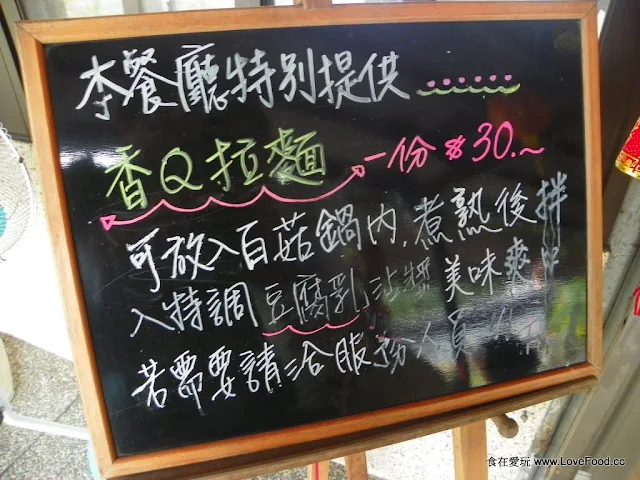 本餐廳特別提供
香Q拉麵 一份$30.~
可放入百菇鍋內,煮熟後拌
入特調豆腐乳沾醬美味爽口
若需要請洽服務人員
食在愛玩 www.LoveFood.cc